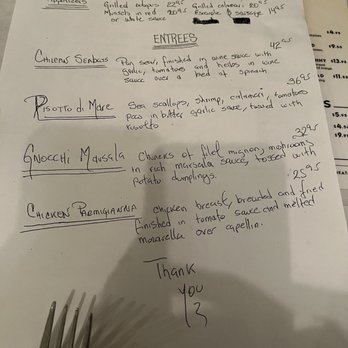 Appetizers
Grilled octopus 22.95
Grilled calamari 20.95
Mussels in red 20.95
Escarole & sausage 14.95
or white sauce
ENTREES
42.95
CHILEAN SEABASS Pan sear, finished in wine sauce with
garlic, tomatoes and herbs in wine
sauce over a bed of spinach
36.95
RISOTTO di MARE Sea scallops, shrimp, calamari, tomatoes
peas in butter garlic sauce, tossed with
risotto
32.95
GNOCCHI MARSALA Chunks of filet mignon, mushrooms
in rich marsala sauce, tossed with
potato dumplings.
25.95
CHICKEN PARMIGIANA chicken breast, breaded and fried
finished in tomato sauce and melted
mozzarella over capellini.
Thank
YOU